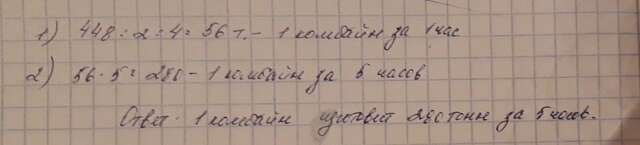 1) 448 : 2 : 4 = 56 т. - 1 комбайн за 1 час
2) 56 · 5 = 280 - 1 комбайн за 5 часов
Ответ: 1 комбайн изготовит 280 тонн за 5 часов.